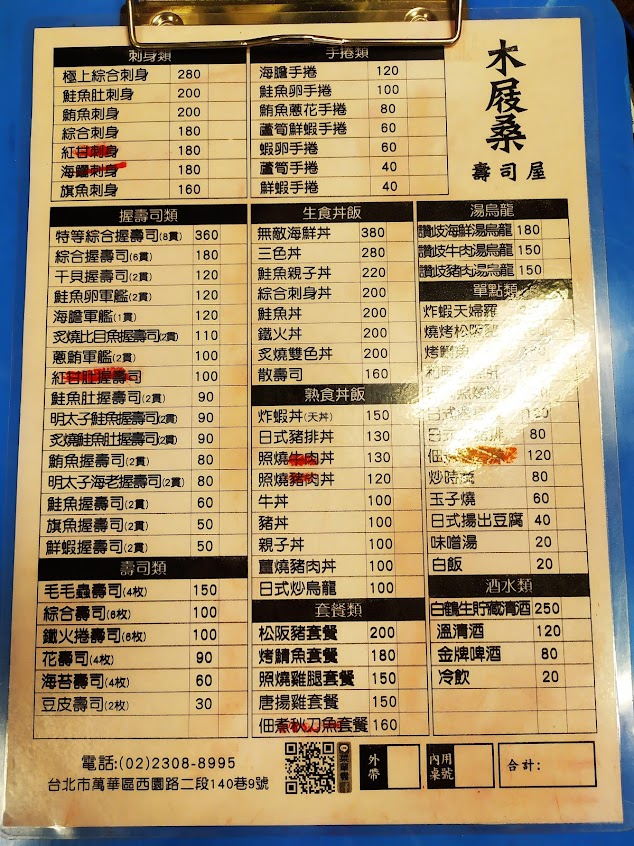 木屐桑
壽司屋
刺身類
極上綜合刺身 280
鮭魚肚刺身 200
鮪魚刺身 200
綜合刺身 180
紅甘刺身 180
海鱺刺身 180
旗魚刺身 160
手捲類
海膽手捲 120
鮭魚卵手捲 100
鮪魚蔥花手捲 80
蘆筍鮮蝦手捲 60
蝦卵手捲 60
蘆筍手捲 40
鮮蝦手捲 40
握壽司類
特等綜合握壽司(8貫) 360
綜合握壽司(6貫) 180
干貝握壽司(2貫) 120
鮭魚卵軍艦(2貫) 120
海膽軍艦(1貫) 120
炙燒比目魚握壽司(2貫) 110
蔥鮪軍艦(2貫) 100
紅甘肚握壽司 100
鮭魚肚握壽司(2貫) 90
明太子鮭魚握壽司(2貫) 90
炙燒鮭魚肚握壽司(2貫) 90
鮪魚握壽司(2貫) 80
明太子海老握壽司(2貫) 80
鮭魚握壽司(2貫) 60
旗魚握壽司(2貫) 50
鮮蝦握壽司(2貫) 50
壽司類
毛毛蟲壽司(4枚) 150
綜合壽司(8枚) 100
鐵火捲壽司(6枚) 100
花壽司(4枚) 90
海苔壽司(4枚) 60
豆皮壽司(2枚) 30
生食丼飯
無敵海鮮丼 380
三色丼 280
鮭魚親子丼 220
綜合刺身丼 200
鮭魚丼 200
鐵火丼 200
炙燒雙色丼 200
散壽司 160
熟食丼飯
炸蝦丼(天丼) 150
日式豬排丼 130
照燒牛肉丼 130
照燒豬肉丼 120
牛丼 100
豬丼 100
親子丼 100
薑燒豬肉丼 100
日式炒烏龍 100
套餐類
松阪豬套餐 200
烤鯖魚套餐 180
照燒雞腿套餐 150
唐揚雞套餐 150
佃煮秋刀魚套餐 160
湯烏龍
讚岐海鮮湯烏龍 180
讚岐牛肉湯烏龍 150
讚岐豬肉湯烏龍 150
單點類
炸蝦天婦羅
燒烤松阪
烤 魚
日式
120
日式 排 80
佃 120
炒時蔬 80
玉子燒 60
日式揚出豆腐 40
味噌湯 20
白飯 20
酒水類
白鶴生貯藏清酒 250
溫清酒 120
金牌啤酒 80
冷飲 20
電話:(02)2308-8995
台北市萬華區西園路二段140巷9號
外帶
內用桌號
合計: